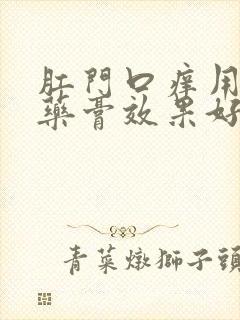 肛門口癢用
藥膏效果好
青菜燉獅子頭